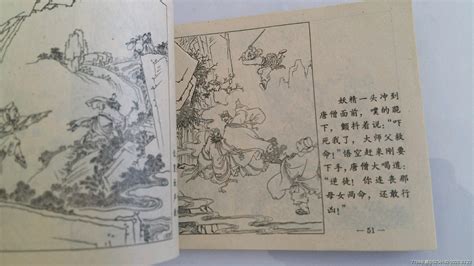 妖精一头冲到
唐僧面前，噗的跪
下，颤抖着说：“吓
死我了，大师父救
命！”悟空赶来刚要
下手，唐僧大喝道：
“逆徒！你连丧那
母女两命，还敢行
凶！”
— 51 —